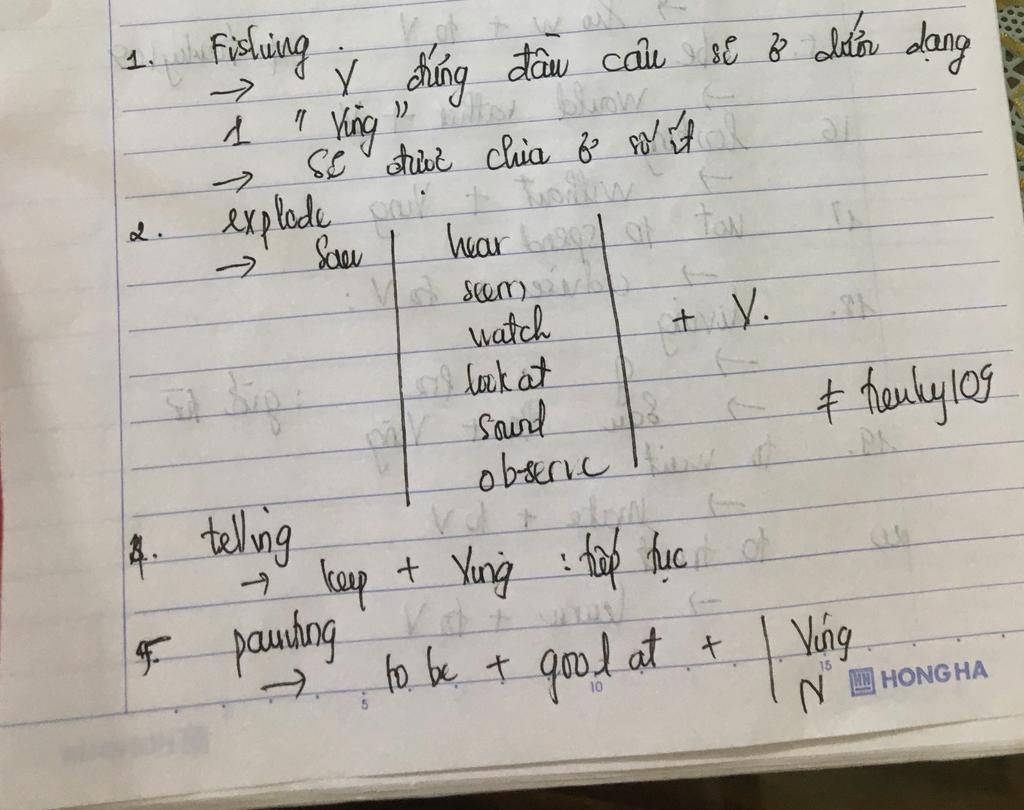 1. Fishing.
→ V đứng đầu câu sẽ ở dưới dạng
1 "Ving"
→ sẽ được chia ở số ít
2. explode
→ Saw | hear
seem
watch
look at
sound
observe
+ V.
# tieuhy109
4. telling
→ keep + Ving : tiếp tục
5. painting
→ to be + good at + | Ving
N
5 10 15
HONG HA